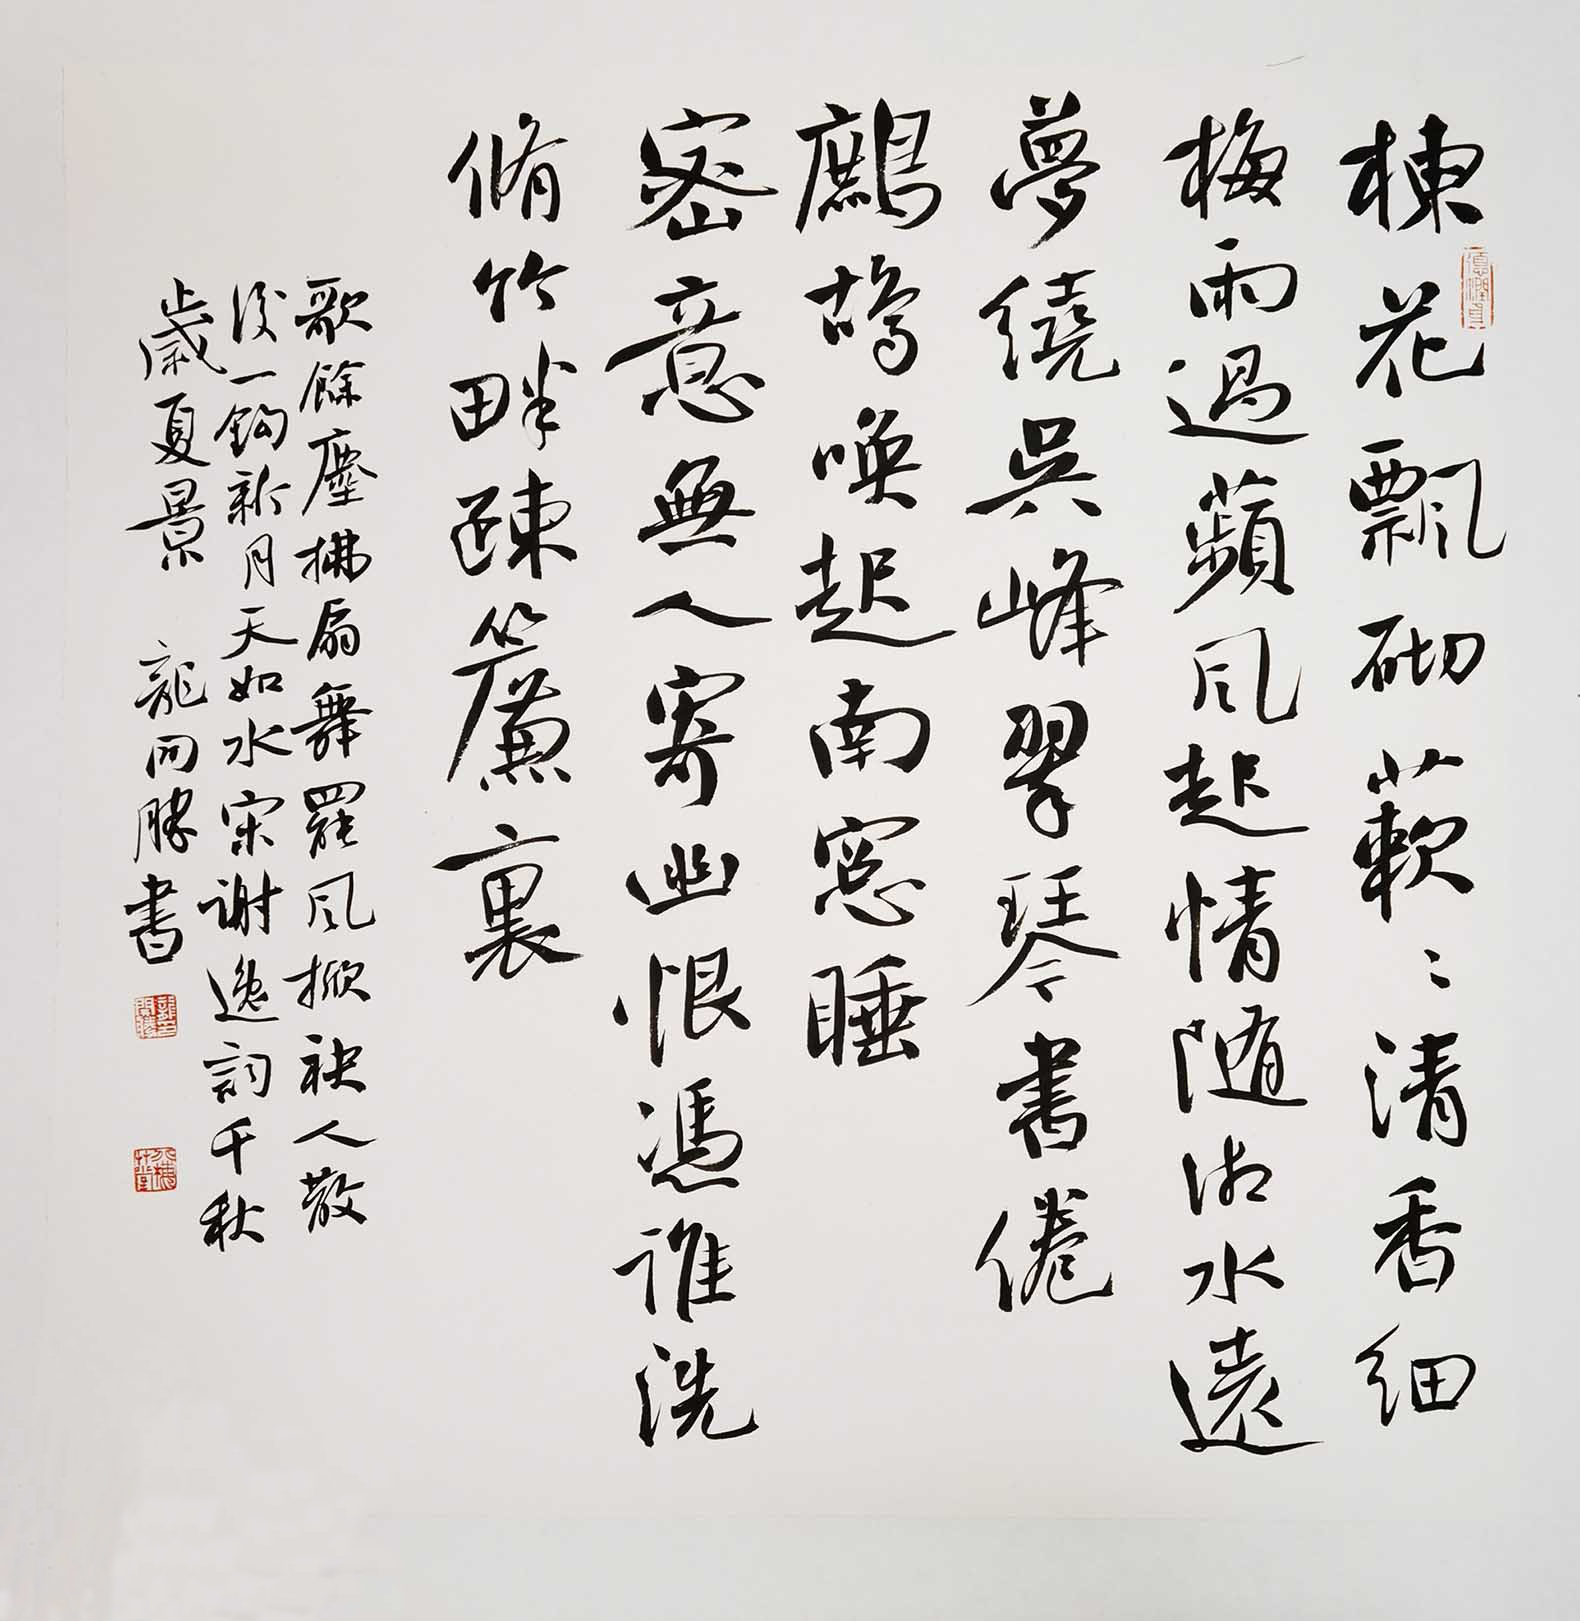 楝花飄砌蔌〻清香細
梅雨過蘋風起情随湘水遠
夢繞吳峰翠琴書倦
鷓鴣喚起南窓睡
密意無人寄幽恨憑誰洗
脩竹畔疎簾裏
歌餘塵拂扇舞罷風掀袂人散
後一鈎新月天如水宋謝逸詞千秋
歲夏景 龍開勝書